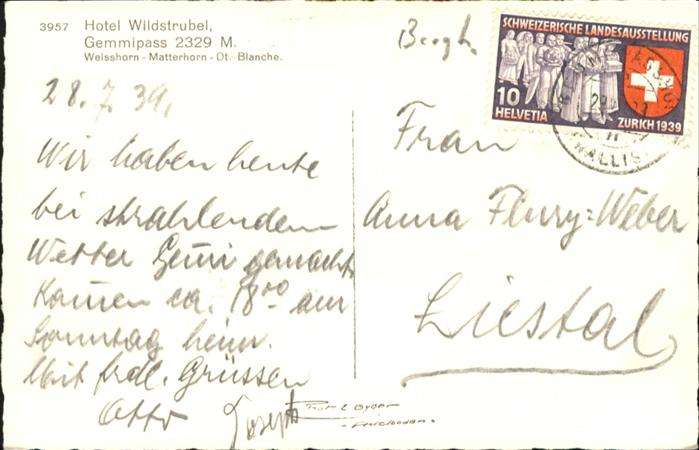 3957 Hotel Wildstrubel,
Gemmipass 2329 M.
Weisshorn - Matterhorn - Dt. Blanche.
28. 7. 39.
Wir haben heute
bei strahlendem
Wetter Gemi gemacht
Kommen ca. 18 00 am
Sonntag heim.
Mit frdl. Grüssen
Otto Joseph
SCHWEIZERISCHE LANDESAUSSTELLUNG
10
HELVETIA ZÜRICH 1939
WALLIS
Frau
Anna Flury-Weber
Liestal
Phot. E. Gyger
Adelboden